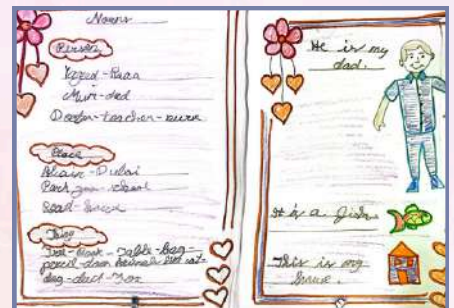 Nouns
Person
Mum-dad
Doctor-teacher-nurse
Place
Dubai
Park-zoo-school
Road-house
Thing
Table-bag-
pencil-door
dog-duck-fox
He is my
dad.
It is a fish
This is my
house.